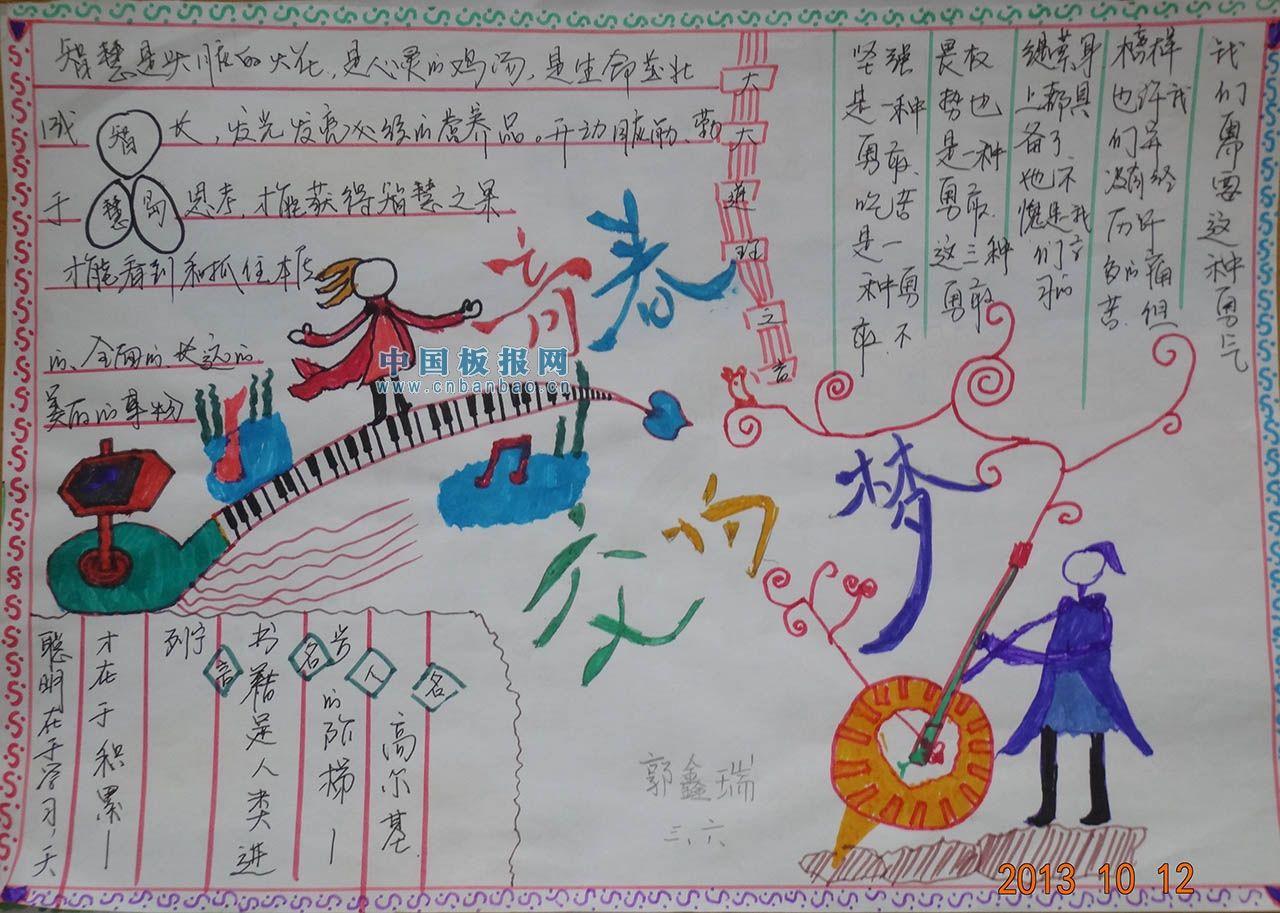 智慧是头脑的火花,是心灵的鸡汤,是生命茁壮
成长,发光发亮必经的营养品。开动脑筋、勤
于思考,才能获得智慧之果
才能看到和抓住本质
的、全面的、长远的
美丽的事物
智
慧
大
大
进
班
之
言
坚强
是一种
勇敢
吃苦
是一
种勇
敢.不
畏权
势也
是一种
勇敢.
这三种
勇敢
继素身
上都具
备了.
他不
愧是我
们学
习的
榜样
也许我
们并
没有经
历许
多的痛
苦.但
我们需要这种勇气
青春
行
向
梦
中国板报网
www.cnbanbao.cn
名
人
名
言
高尔基
号的阶梯—
书籍是人类进
到宁
才在于积累—
聪明在于学习,天
郭鑫瑞
三、六
2013 10 12